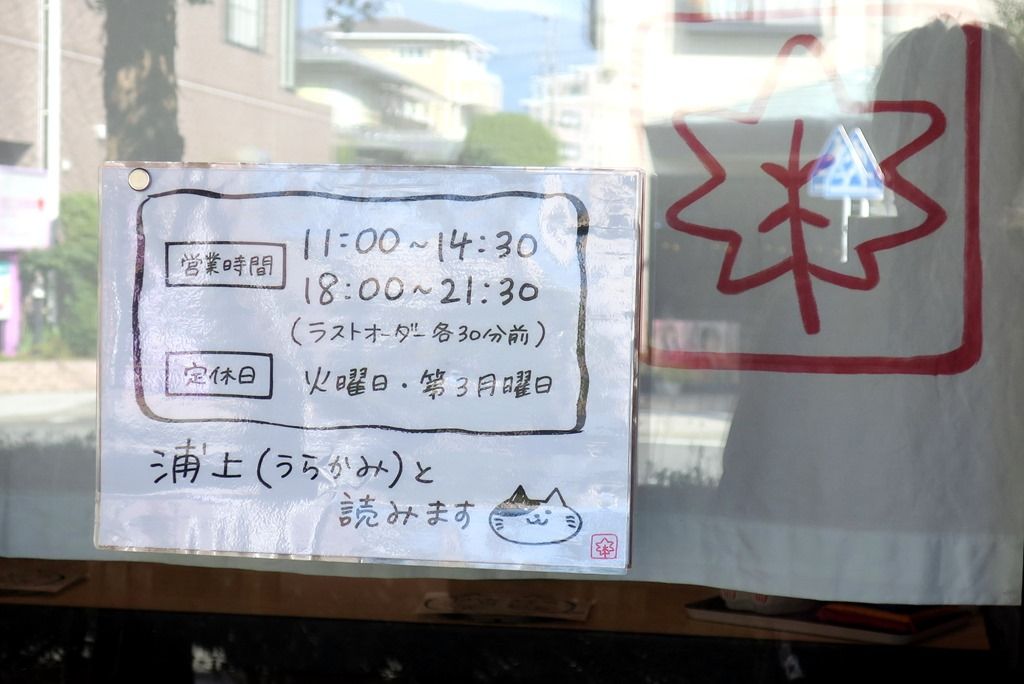 営業時間 11:00~14:30
18:00~21:30
(ラストオーダー各30分前)
定休日 火曜日・第3月曜日
浦上(うらかみ)と
読みます